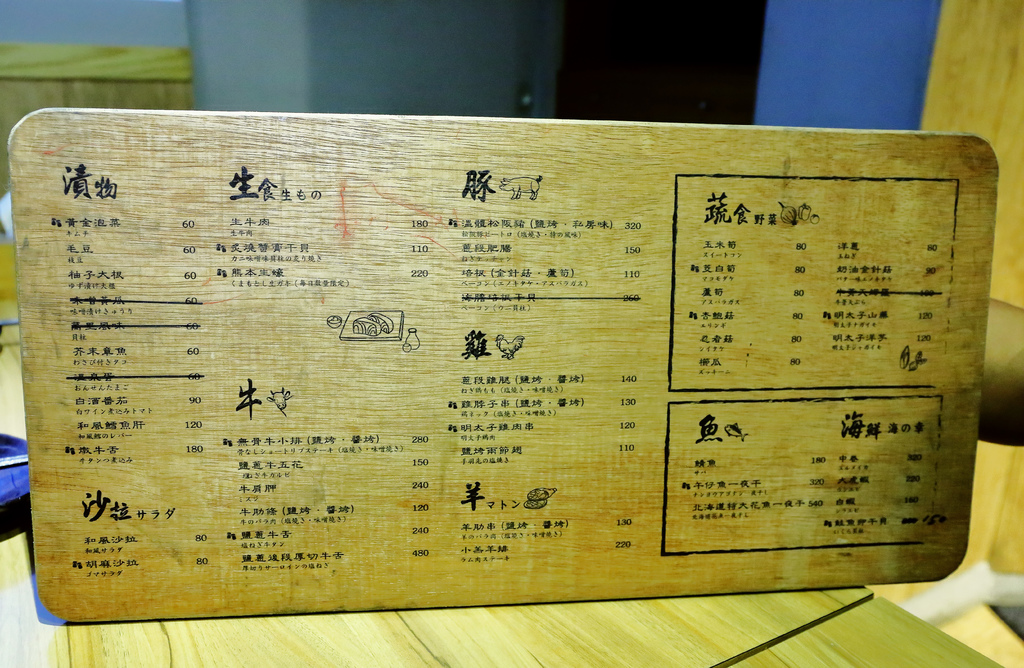 漬物
黃金泡菜 60
キムチ
毛豆 60
枝豆
柚子大根 60
ゆず漬け大根
味噌黃瓜 60
味噌漬けきゅうり
萬里風味 60
貝柱
芥末章魚 60
わさび付きタコ
溫泉蛋 60
おんせんたまご
白酒番茄 90
白ワイン煮込みトマト
和風鱈魚肝 120
和風鱈のレバー
燉牛舌 180
牛タンつ煮込み
沙拉 サラダ
和風沙拉 80
和風サラダ
胡麻沙拉 80
ゴマサラダ
生食 生もの
生牛肉 180
生牛肉
炙燒蟹黃干貝 110
カニ味噌味貝柱の炙り焼き
熊本生蠔 220
くまもとし生ガキ(毎日数量限定)
牛
無骨牛小排 (鹽烤・醬烤) 280
骨なしショートリブステーキ (塩焼き・味噌焼き)
鹽蔥牛五花 150
塩ねぎ牛カルビ
牛肩胛 240
ミスジ
牛肋條 (鹽烤・醬烤) 120
牛のバラ肉 (塩焼き・味噌焼き)
鹽蔥牛舌 240
塩ねぎ牛タン
鹽蔥後段厚切牛舌 480
厚切りサーロインの塩ねぎ
豚
溫體松阪豬 (鹽烤・私房味) 320
松阪豚ピートロ (塩焼き・特の風味)
蔥段肥腸 150
ねぎテッチャン
培根 (金針菇・蘆筍) 110
ベーコン (エノキタケ・アスパラガス)
海膽培根干貝 260
ベーコン (ウニ貝柱)
雞
蔥段雞腿 (鹽烤・醬烤) 140
ねぎ鶏もも (塩焼き・味噌焼き)
雞脖子串 (鹽烤・醬烤) 130
鶏ネック (塩焼き・味噌焼き)
明太子雞肉串 120
明太子鶏肉
鹽烤兩節翅 110
手羽先の塩焼き
羊 マトン
羊肋串 (鹽烤・醬烤) 130
羊のバラ肉 (塩焼き・味噌焼き)
小羔羊排 220
ラム肉ステーキ
蔬食 野菜
玉米筍 80
スイートコン
茭白筍 80
マコモダケ
蘆筍 80
アスパラガス
杏鮑菇 80
エリンギ
忍者菇 80
シイタケ
櫛瓜 80
ズッキーニ
洋蔥 80
玉ねぎ
奶油金針菇 90
バター味エノキタケ
120
明太子山藥 120
明太子ナガイモ
明太子洋芋 120
明太子ジャガイモ
魚
鯖魚 180
サバ
午仔魚一夜干 320
一夜干し
北海道特大花魚一夜干 540
北海道花魚一夜干し
海鮮 海の幸
中卷 220
大虎蝦 320
白蝦 160
鮭魚卵干貝 150
いくら貝柱